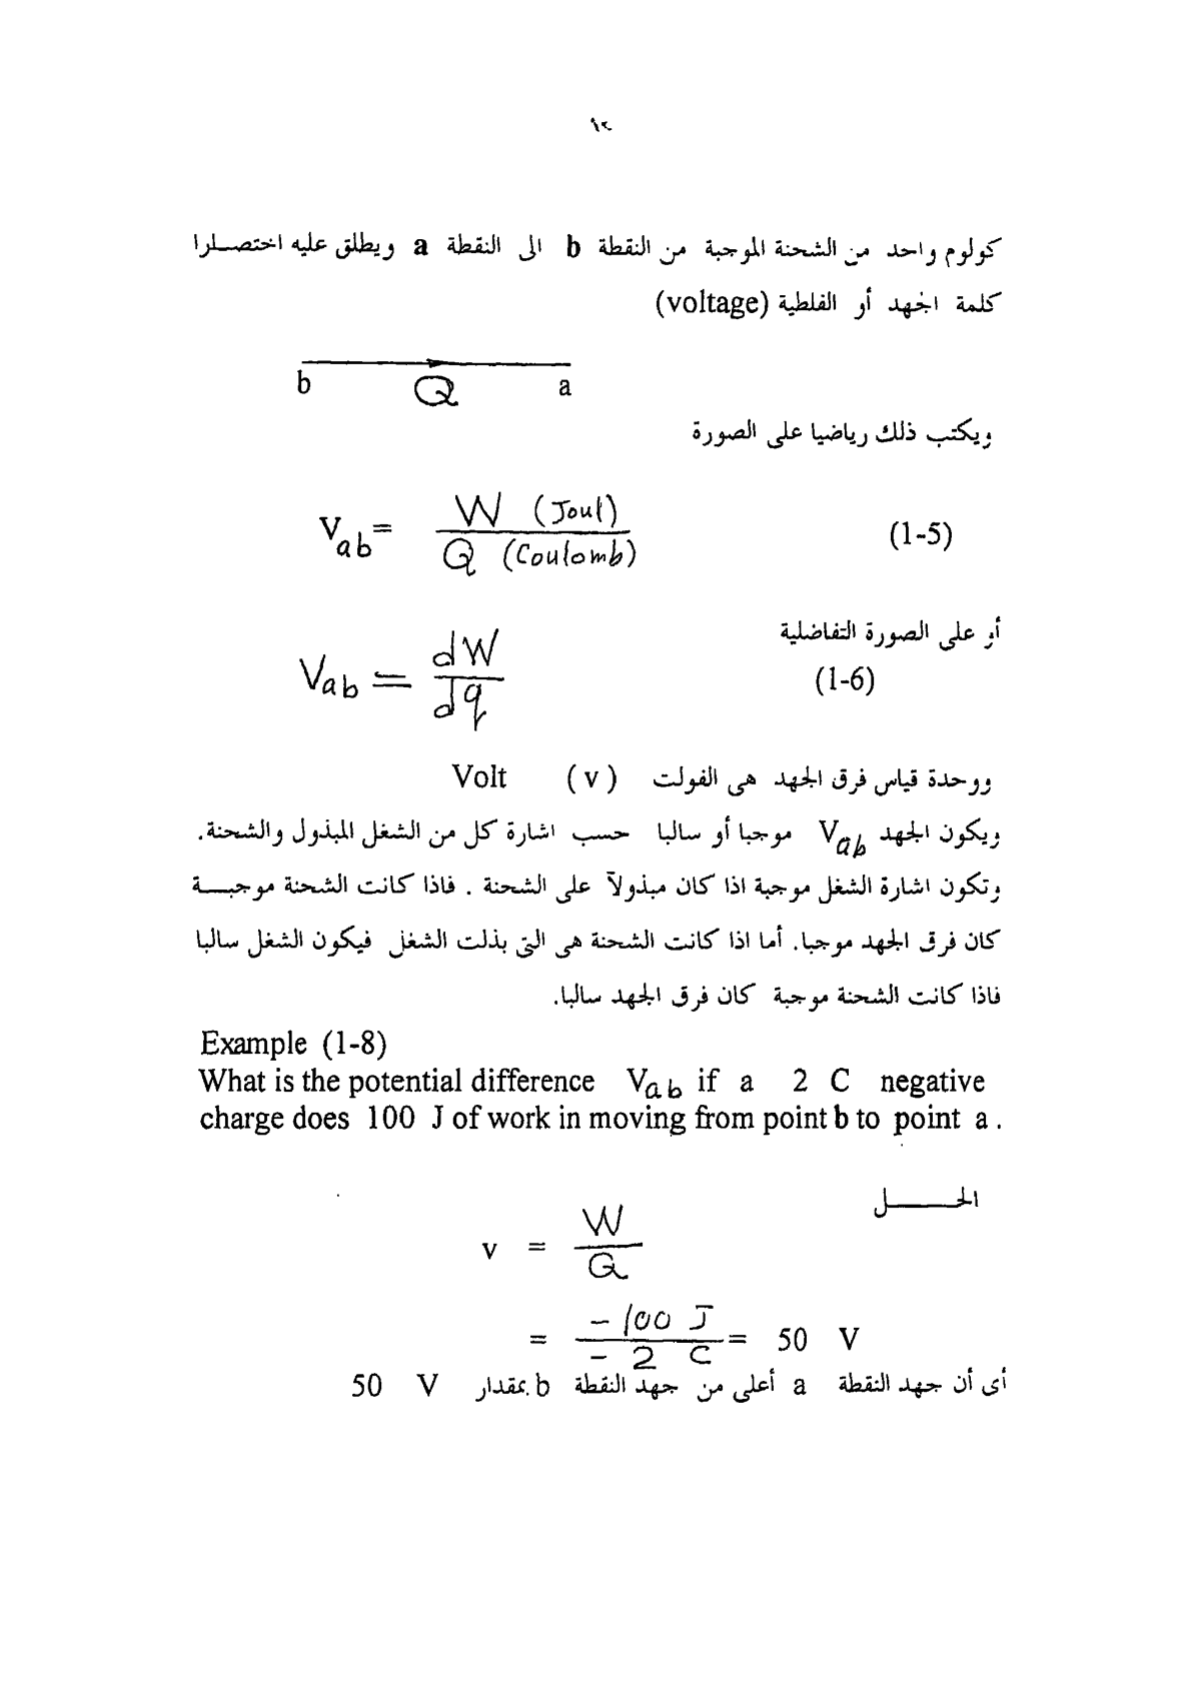 ١٢
كولوم واحد من الشحنة الموجبة من النقطة b الى النقطة a ويطلق عليه اختصارا
كلمة الجهد أو الفلطية (voltage)
b Q a
ويكتب ذلك رياضيا على الصورة
V_ab = W (Joul) / Q (Coulomb) (1-5)
أو على الصورة التفاضلية
V_ab = dW / dq (1-6)
ووحدة قياس فرق الجهد هى الفولت Volt ( v )
ويكون الجهد V_ab موجبا أو سالبا حسب اشارة كل من الشغل المبذول والشحنة.
وتكون اشارة الشغل موجبة اذا كان مبذولاً على الشحنة . فاذا كانت الشحنة موجبـــة
كان فرق الجهد موجبا. أما اذا كانت الشحنة هى التى بذلت الشغل فيكون الشغل سالبا
فاذا كانت الشحنة موجبة كان فرق الجهد سالبا.
Example (1-8)
What is the potential difference V_ab if a 2 C negative
charge does 100 J of work in moving from point b to point a .
الحـــــــل
v = W / Q
= - 100 J / - 2 C = 50 V
أى أن جهد النقطة a أعلى من جهد النقطة b بمقدار 50 V